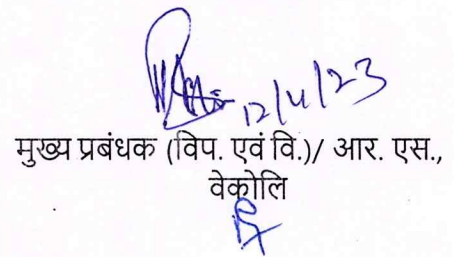 12/4/23
मुख्य प्रबंधक (विप. एवं वि.)/ आर. एस.,
वेकोलि